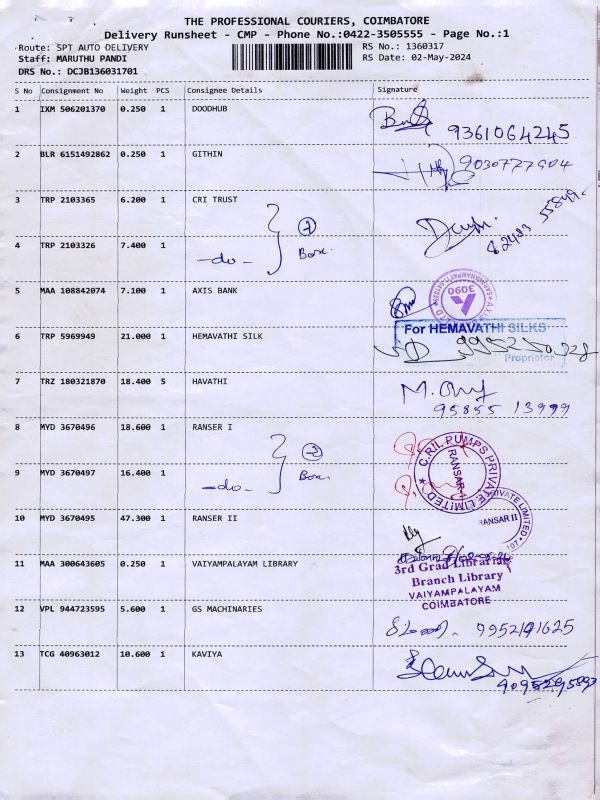 THE PROFESSIONAL COURIERS, COIMBATORE
Delivery Runsheet - CMP - Phone No.:0422-3505555 - Page No.:1
Route: SPT AUTO DELIVERY RS No.: 1360317
Staff: MARUTHU PANDI RS Date: 02-May-2024
DRS No.: DCJB136031701
S No Consignment No Weight PCS Consignee Details Signature
1 IXM 506201370 0.250 1 DOODHUB
9361064245
2 BLR 6151492862 0.250 1 GITHIN
9030777904
3 TRP 2103365 6.200 1 CRI TRUST
Box
4 TRP 2103326 7.400 1 -do-
5 MAA 108842074 7.100 1 AXIS BANK
3090
For HEMAVATHI SILKS
6 TRP 5969949 21.000 1 HEMAVATHI SILK
Proprietor
7 TRZ 180321870 18.400 5 HAVATHI
95855 13999
8 MYD 3670496 18.600 1 RANSER I
C.R.I. PUMPS PRIVATE LIMITED
RANSAR I
9 MYD 3670497 16.400 1 -do-
Box
10 MYD 3670495 47.300 1 RANSER II
PRIVATE LIMITED
RANSAR II
11 MAA 300643605 0.250 1 VAIYAMPALAYAM LIBRARY
3rd Grad Librarian
Branch Library
VAIYAMPALAYAM
COIMBATORE
12 VPL 944723595 5.600 1 GS MACHINARIES
9952191625
13 TCG 40963012 10.600 1 KAVIYA
9095295893